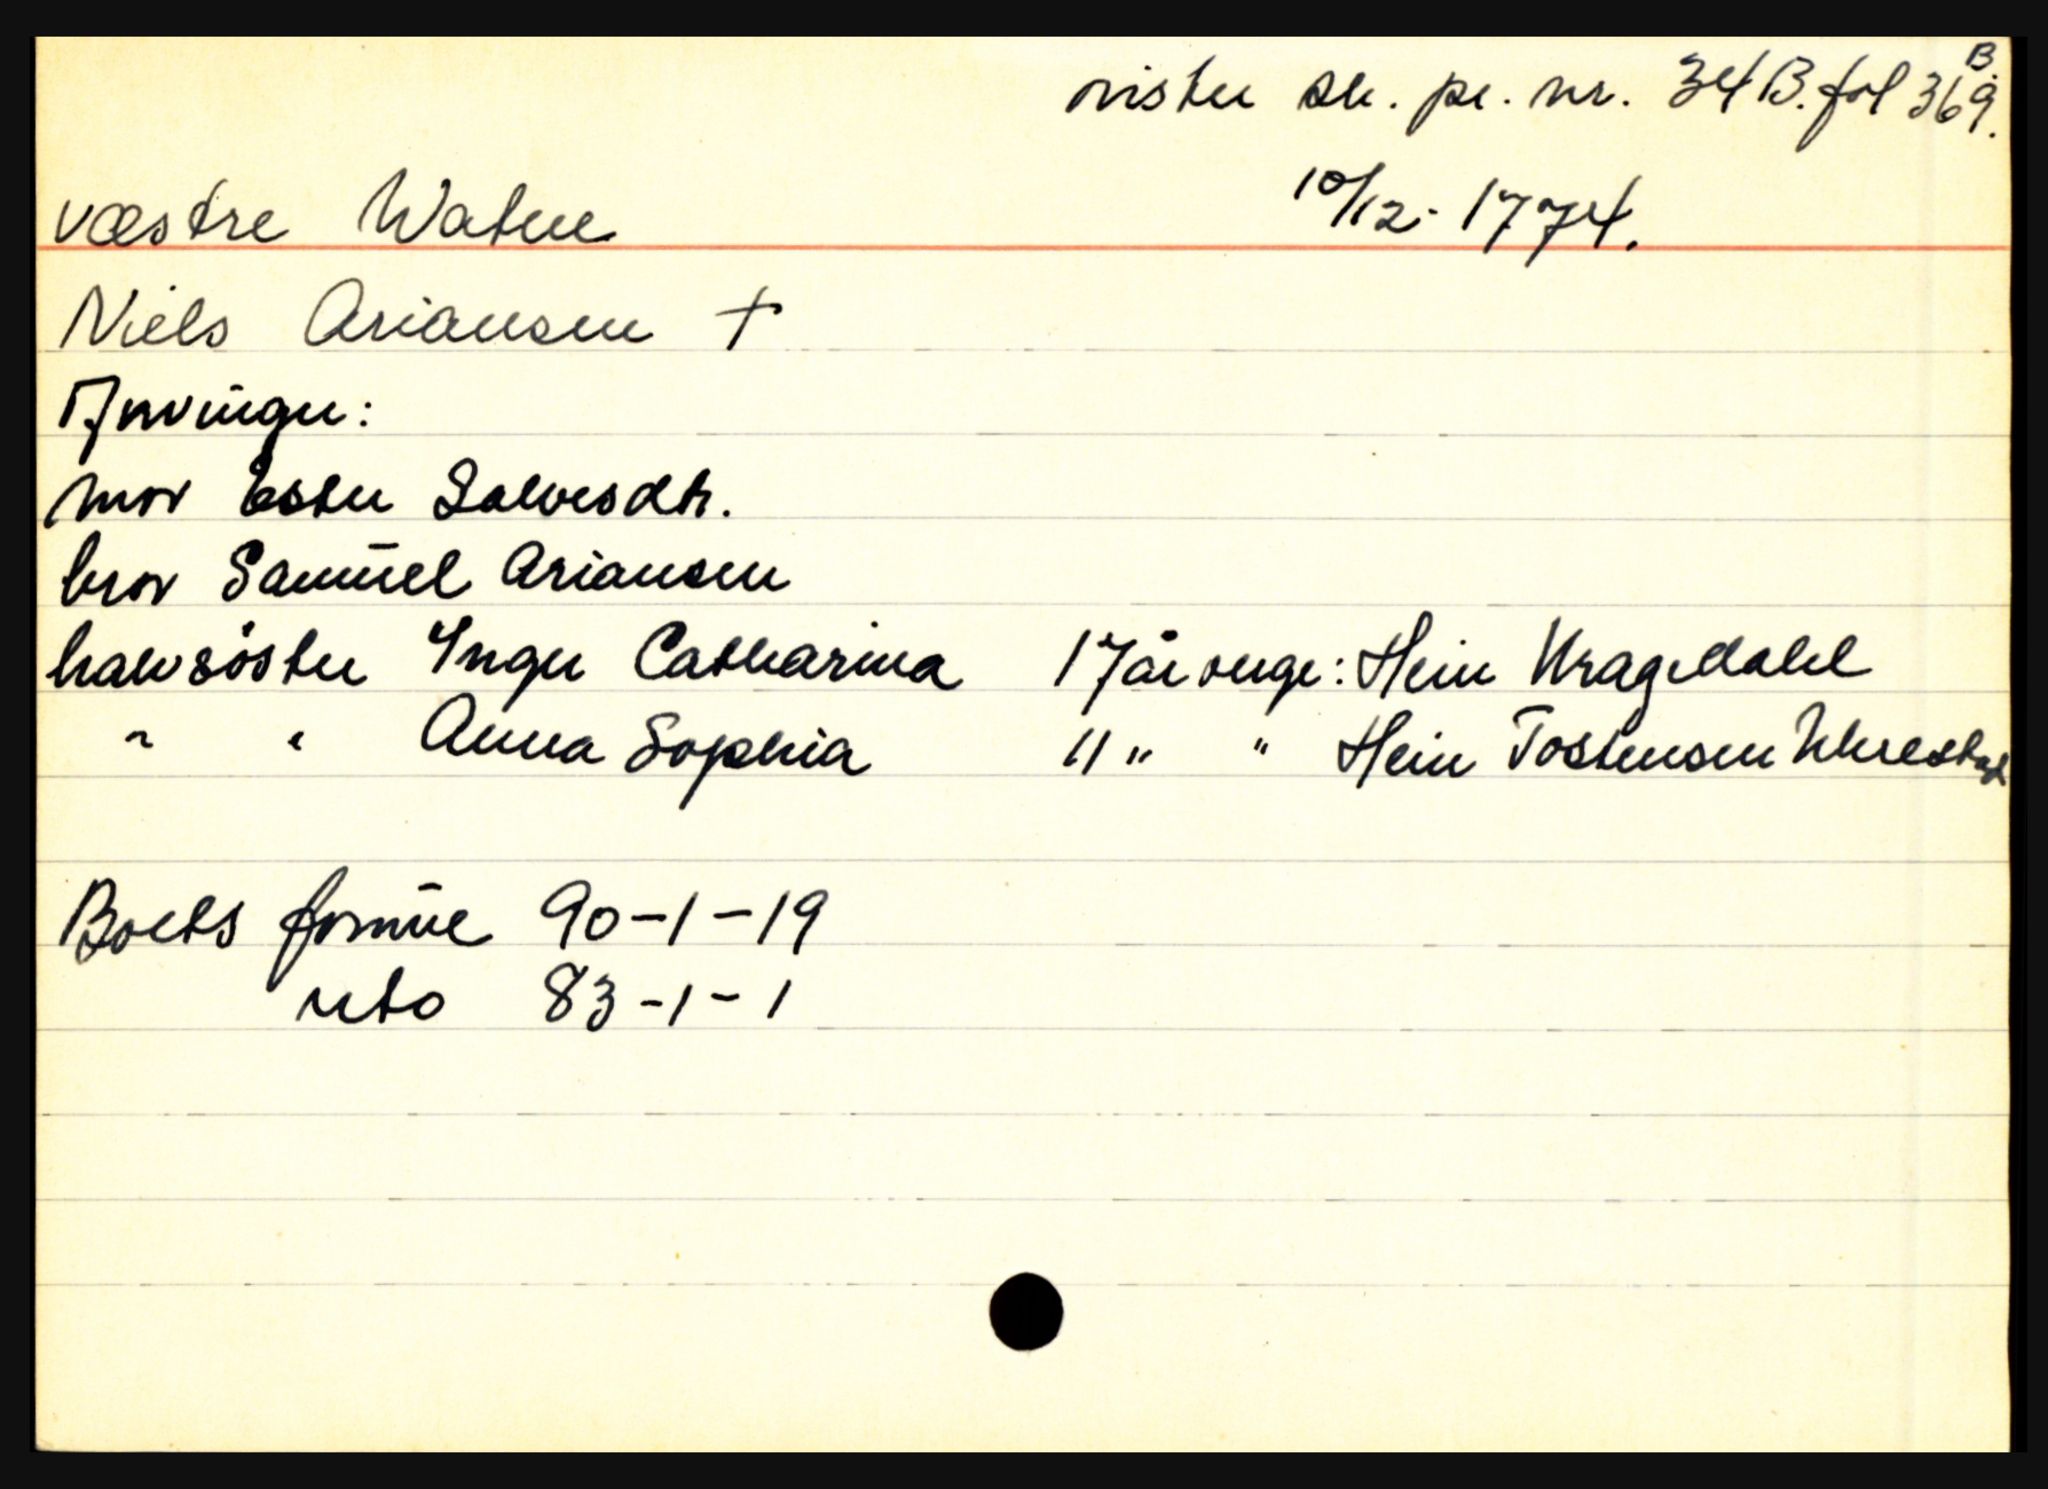 Lister sk. pr. nr. 34 B. fol 369 B.
væstre Watne 10/12- 1774.
Niels Ariansen +
Arvinger:
mor Ester Salvesdtr.
bror Samuel Ariansen
halvsöster Inger Catharina 17 år verge: Hein Kragedahl
" " Anna Sophia 11 " " Hein Tostensen Urestad
Boets formue 90-1-19
neto 83-1-1